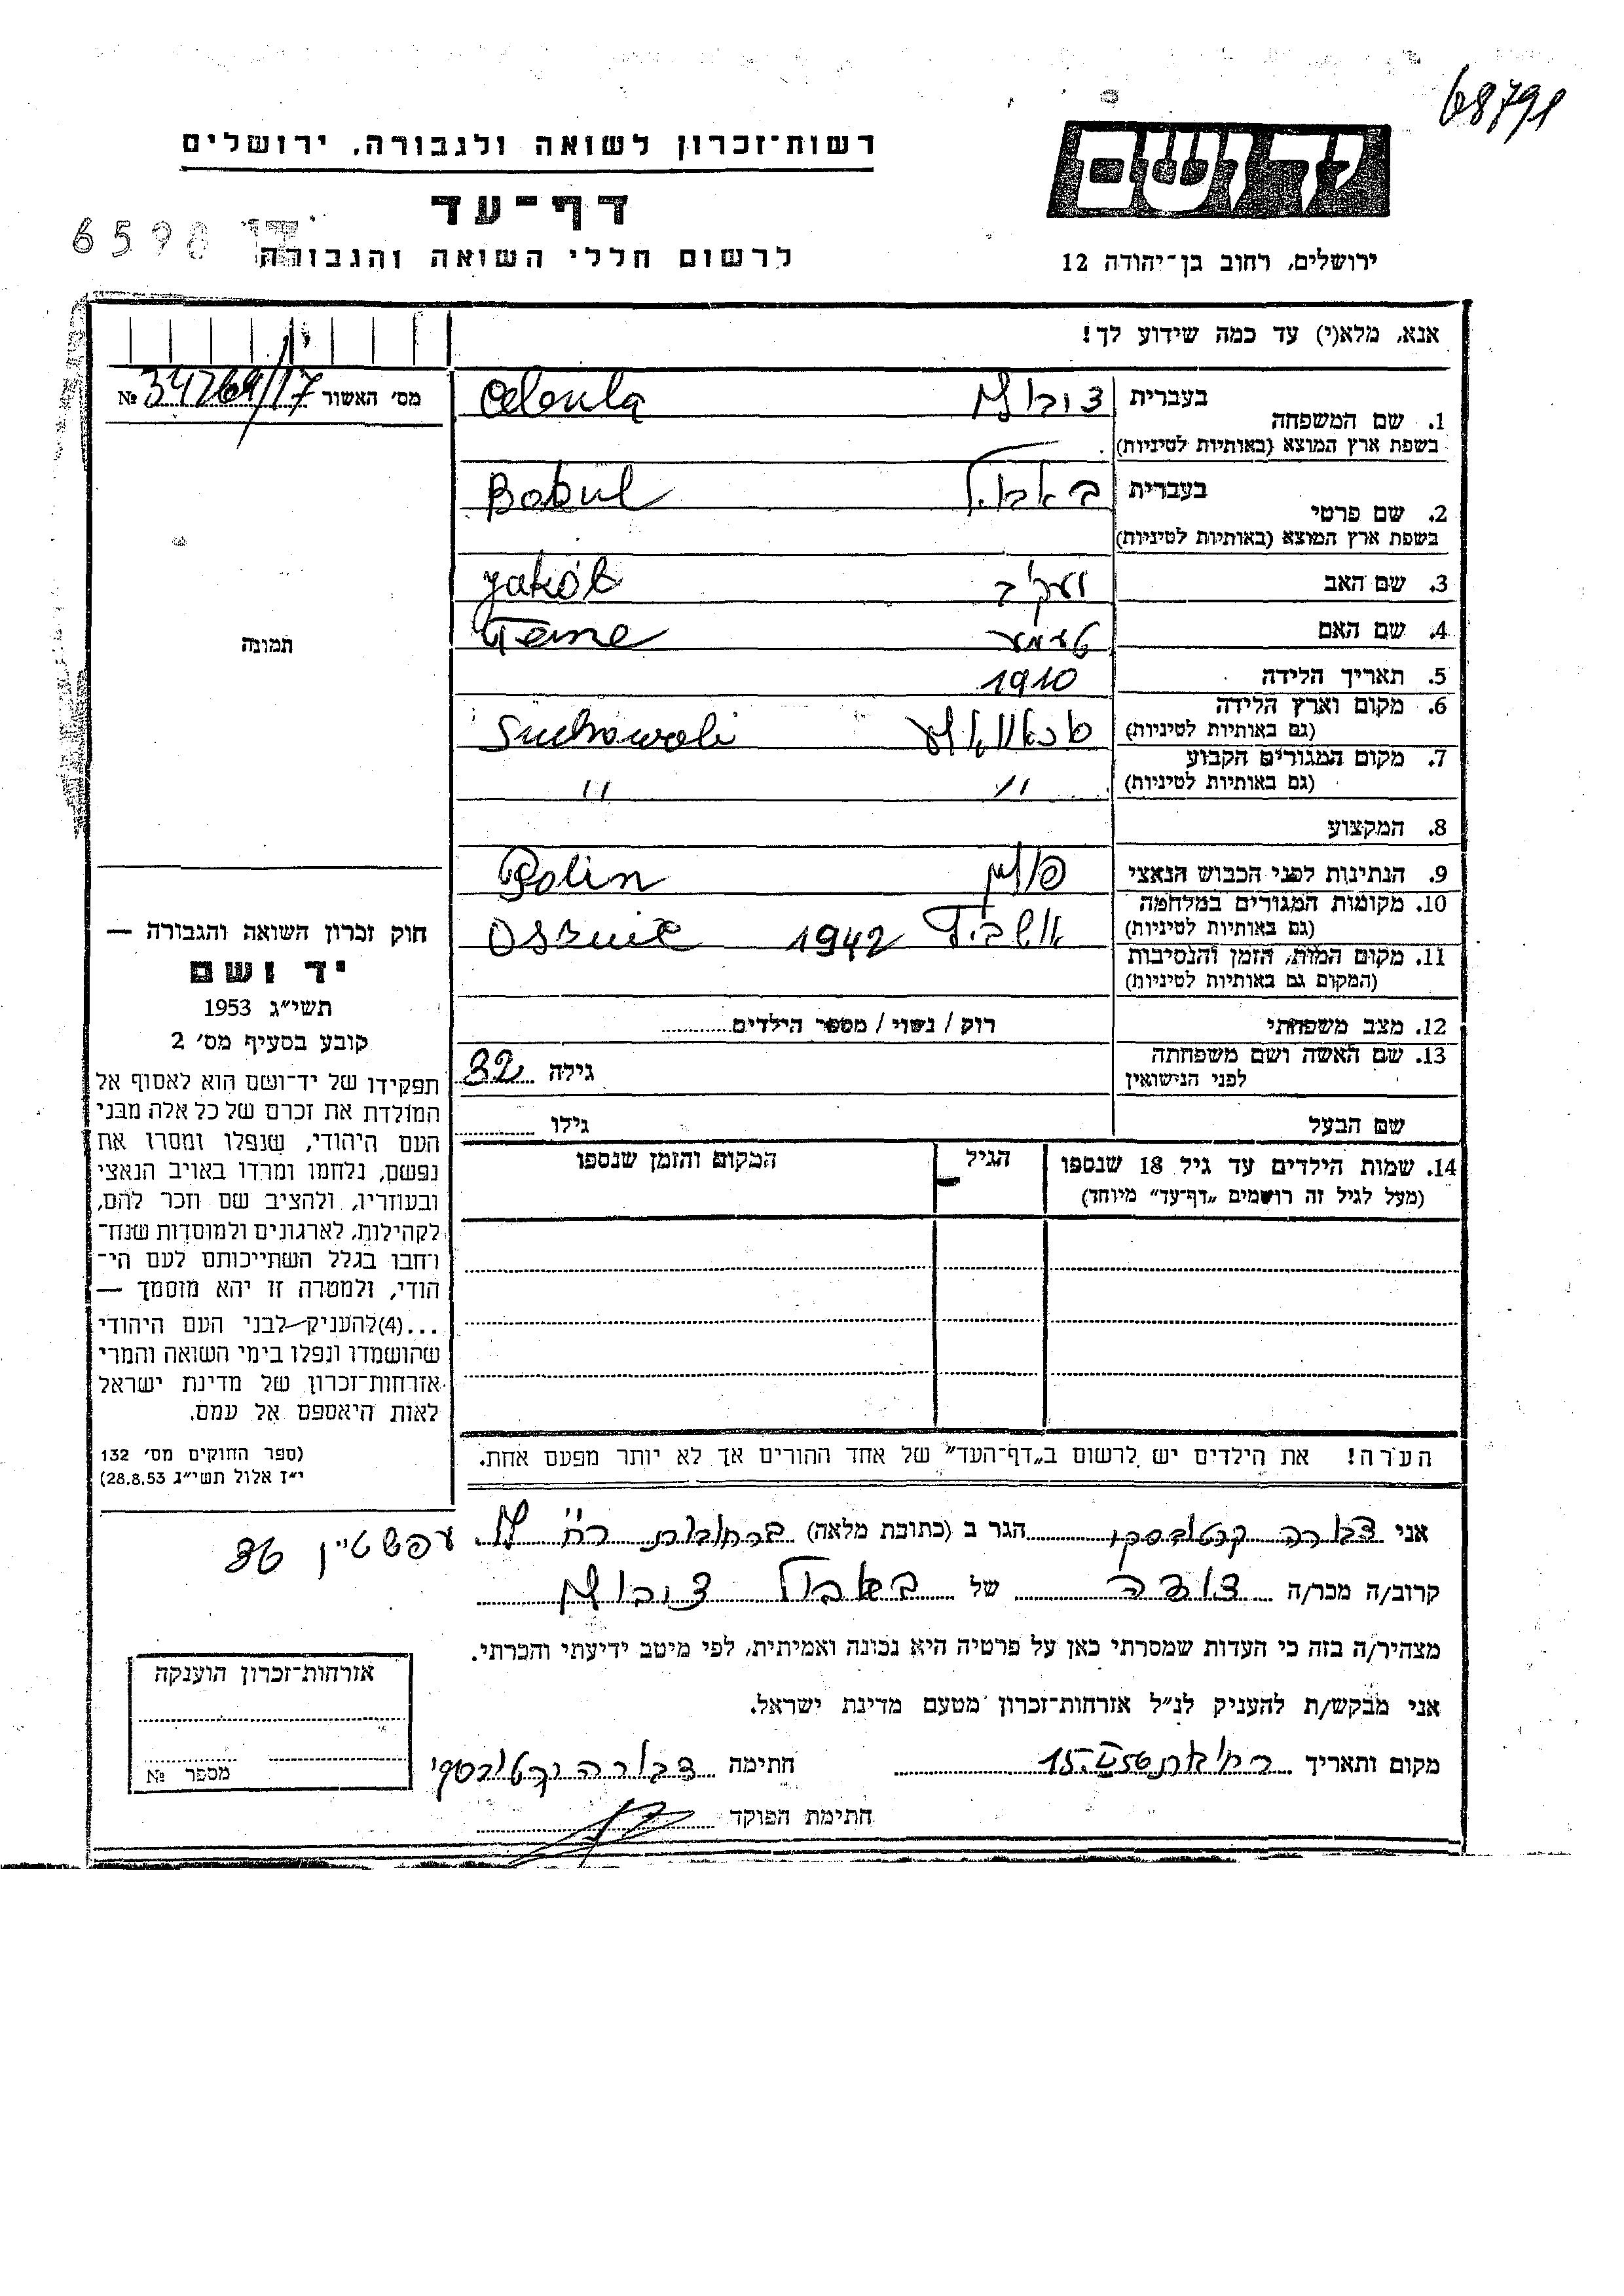 68791
יד ושם
רשות־זכרון לשואה ולגבורה, ירושלים
דף־עד
6598
לרשום חללי השואה והגבורה
ירושלים, רחוב בן־יהודה 12
אנא, מלא(י) עד כמה שידוע לך!
מס׳ האשור 34269/17 №
1. שם המשפחה
בעברית
בשפת ארץ המוצא (באותיות לטיניות)
2. שם פרטי
בעברית Bobul
בשפת ארץ המוצא (באותיות לטיניות)
3. שם האב Jakób
4. שם האם
תמונה
5. תאריך הלידה 1910
6. מקום וארץ הלידה Suchowoli
(גם באותיות לטיניות)
7. מקום המגורים הקבוע 11 11
(גם באותיות לטיניות)
8. המקצוע
9. הנתינות לפני הכבוש הנאצי פולין Polin
10. מקומות המגורים במלחמה
(גם באותיות לטיניות) 1942
11. מקום המות, הזמן והנסיבות
(המקום גם באותיות לטיניות)
12. מצב משפחתי רוק / נשוי / מספר הילדים
13. שם האשה ושם משפחתה
לפני הנישואין גילה 32
שם הבעל גילו
14. שמות הילדים עד גיל 18 שנספו הגיל המקום והזמן שנספו
(מעל לגיל זה רושמים „דף־עד״ מיוחד)
חוק זכרון השואה והגבורה —
יד ושם
תשי״ג 1953
קובע בסעיף מס׳ 2
תפקידו של יד־ושם הוא לאסוף אל
המולדת את זכרם של כל אלה מבני
העם היהודי, שנפלו ומסרו את
נפשם, נלחמו ומרדו באויב הנאצי
ובעוזריו, ולהציב שם וזכר להם,
לקהילות, לארגונים ולמוסדות שנח־
רחבו בגלל השתייכותם לעם הי־
הודי, ולמטרה זו יהא מוסמך —
...(4) להעניק לבני העם היהודי
שהושמדו ונפלו בימי השואה והמרי
אזרחות־זכרון של מדינת ישראל
לאות היאספם אל עמם.
(ספר החוקים מס׳ 132
י״ז אלול תשי״ג 28.8.53)
הערה! את הילדים יש לרשום ב„דף־העד״ של אחד ההורים אך לא יותר מפעם אחת.
אני הגר ב (כתובת מלאה) ברחובות רח׳
עפשטיין 36
קרוב/ה מכר/ה דודה של באבול
מצהיר/ה בזה כי העדות שמסרתי כאן על פרטיה היא נכונה ואמיתית, לפי מיטב ידיעתי והכרתי.
אני מבקש/ת להעניק לנ״ל אזרחות־זכרון מטעם מדינת ישראל.
מקום ותאריך חתימה דבורה
חתימת הפוקד
אזרחות־זכרון הוענקה
מספר №